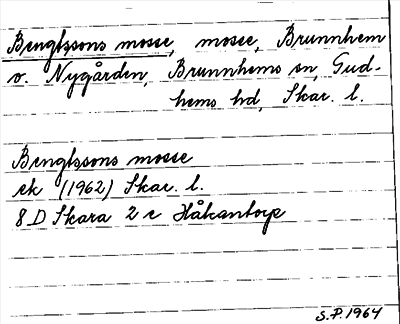 Bengtssons mosse, mosse, Brunnhem
v. Nygården, Brunnhems sn, Gud-
hems hd, Skar. l.
Bengtssons mosse
ek (1962) Skar. l.
8 D Skara 2 c Håkantorp
S.P. 1964